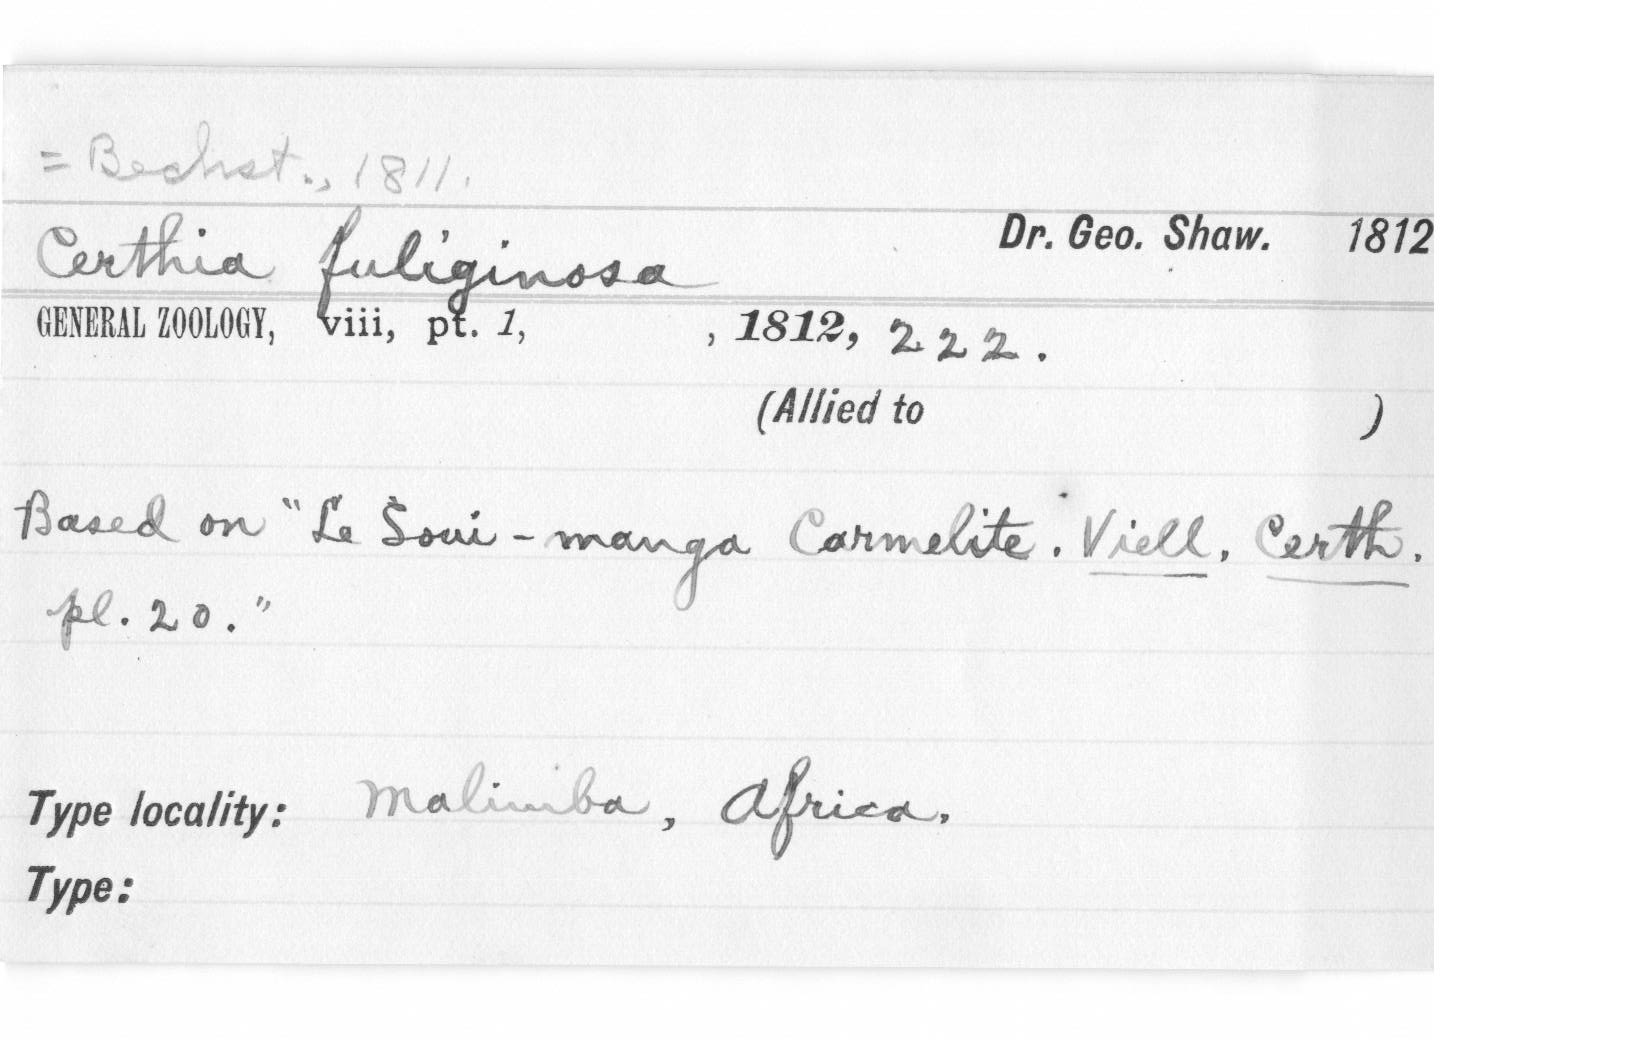 = Bechst., 1811.
Certhia fuliginosa Dr. Geo. Shaw. 1812
GENERAL ZOOLOGY, viii, pt. 1, , 1812, 222.
(Allied to )
Based on "Le Soui-manga Carmelite. Viell. Certh.
pl. 20."
Type locality: Malimba, Africa.
Type: